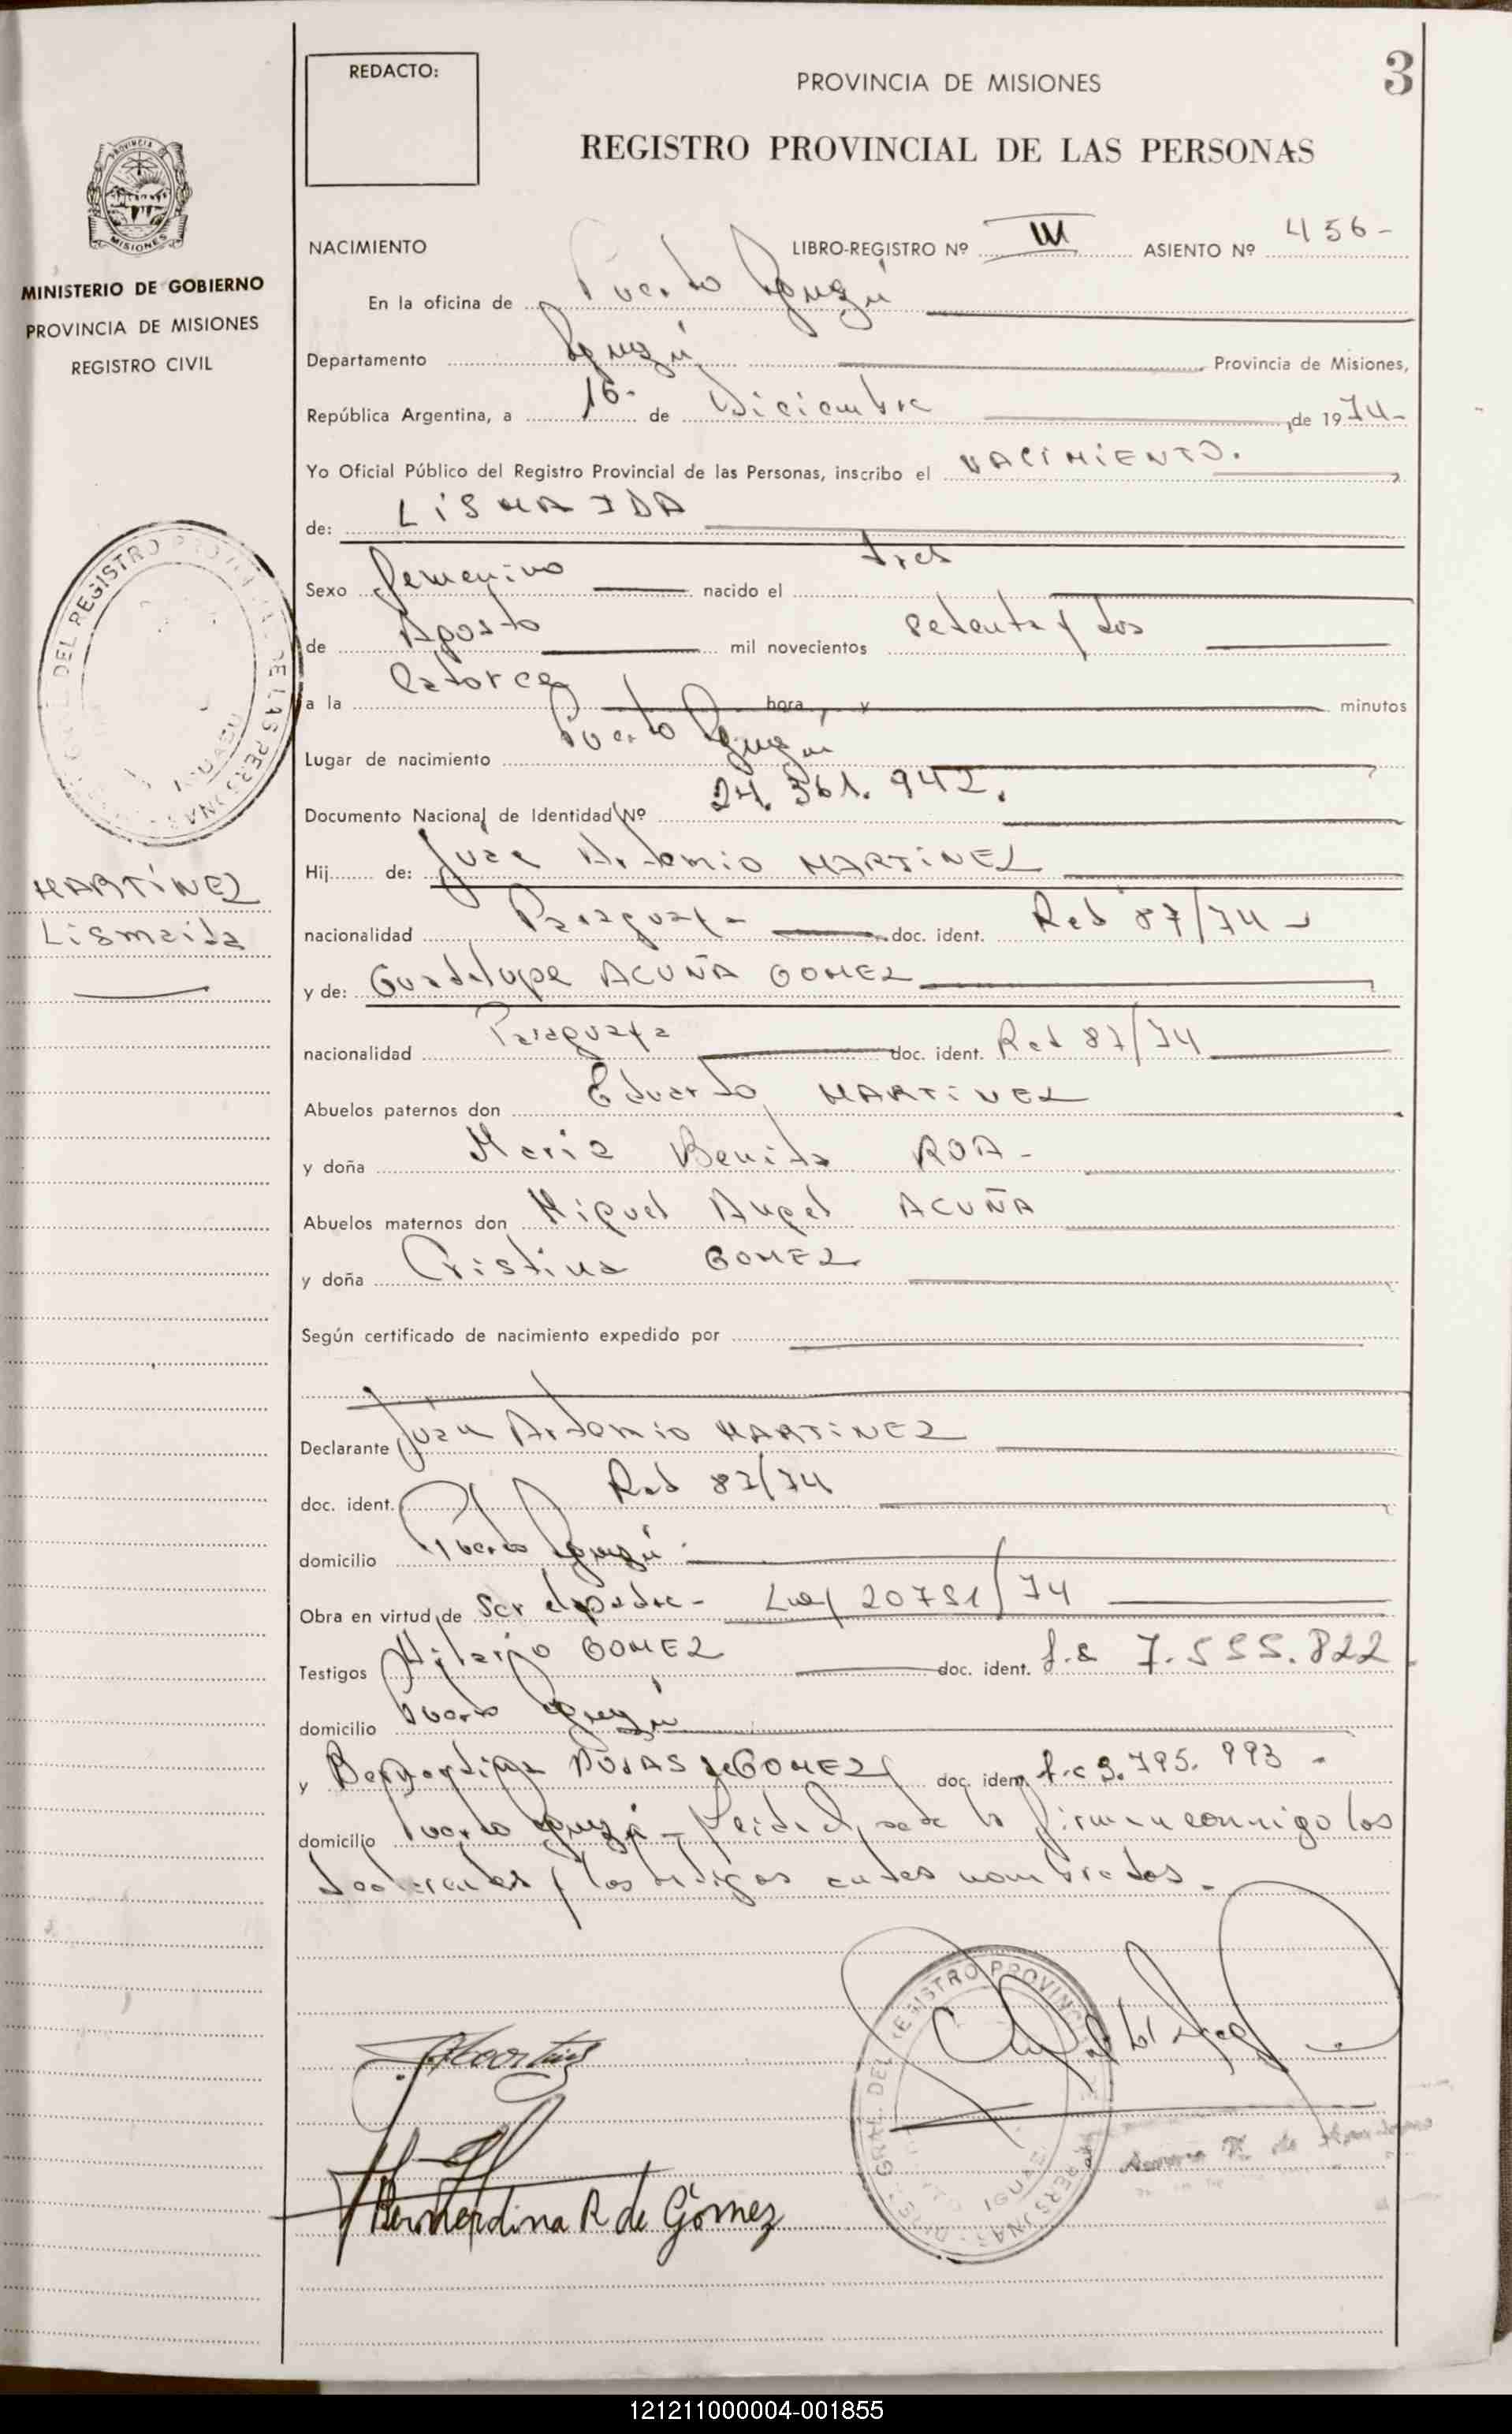 REDACTO:
PROVINCIA DE MISIONES
3
REGISTRO PROVINCIAL DE LAS PERSONAS
PROVINCIA
MISIONES
MINISTERIO DE GOBIERNO
PROVINCIA DE MISIONES
REGISTRO CIVIL
NACIMIENTO LIBRO-REGISTRO Nº III ASIENTO Nº 456-
En la oficina de Puerto Iguazú
Departamento Iguazú Provincia de Misiones,
República Argentina, a 16- de Diciembre de 1974-
Yo Oficial Público del Registro Provincial de las Personas, inscribo el NACIMIENTO.
de: LISMAIDA
Sexo femenino nacido el tres
de Agosto mil novecientos setenta y dos
a la catorce hora, y minutos
Lugar de nacimiento Puerto Iguazú
Documento Nacional de Identidad Nº 24.361.942.
Hij de: Juan Artemio MARTINEZ
nacionalidad Paraguaya doc. ident. Rad 87/74-
y de: Guadalupe ACUÑA GOMEZ
nacionalidad Paraguaya doc. ident. Rad 87/74
Abuelos paternos don Eduardo MARTINEZ
y doña Maria Benita ROA-
Abuelos maternos don Miguel Angel ACUÑA
y doña Cristina GOMEZ
Según certificado de nacimiento expedido por
Declarante Juan Artemio MARTINEZ
doc. ident. Rad 87/74
domicilio Puerto Iguazú.
Obra en virtud de ser el padre- Ley 20751/74
Testigos Hilario GOMEZ doc. ident. 7.555.822
domicilio Puerto Iguazú
y Bernardina ROJAS de GOMEZ doc. ident. 795.993-
domicilio Puerto Iguazú- Leida el acta la firman conmigo los
declarantes y los testigos antes nombrados.-
MARTÍNEZ
Lismaida
DEL REGISTRO PROVINCIAL DE LAS PERSONAS
IGUAZU
Bernardina R de Gómez
GRAL. DEL REGISTRO PROVINCIAL
PERSONAS
IGUAZU
121211000004-001855